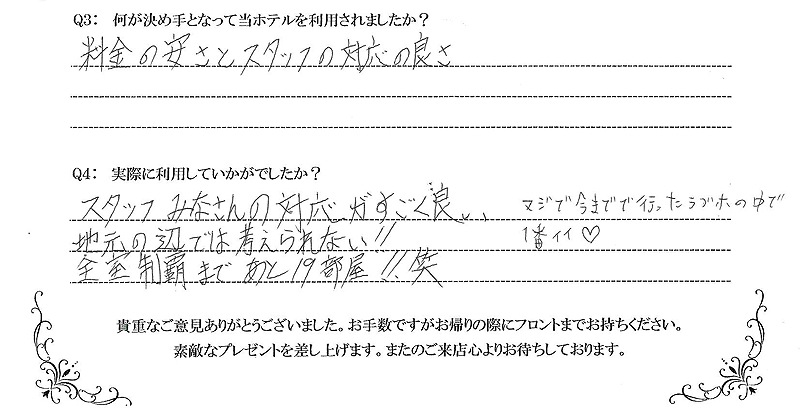 Q3: 何が決め手となって当ホテルを利用されましたか？
料金の安さとスタッフの対応の良さ
Q4: 実際に利用していかがでしたか？
スタッフみなさんの対応がすごく良い、
地元の辺では考えられない!!
全室制覇まであと19部屋!!笑
マジで今までで行ったラブホの中で
1番イイ♡
貴重なご意見ありがとうございました。お手数ですがお帰りの際にフロントまでお持ちください。
素敵なプレゼントを差し上げます。またのご来店心よりお待ちしております。